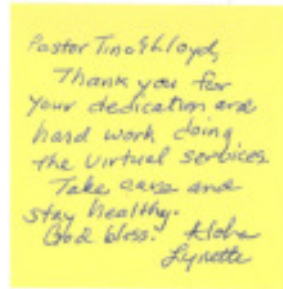 Pastor Tino & Lloyd,
Thank you for
your dedication and
hard work doing
the virtual services
Take care and
stay healthy.
God bless. Aloha
Lynette